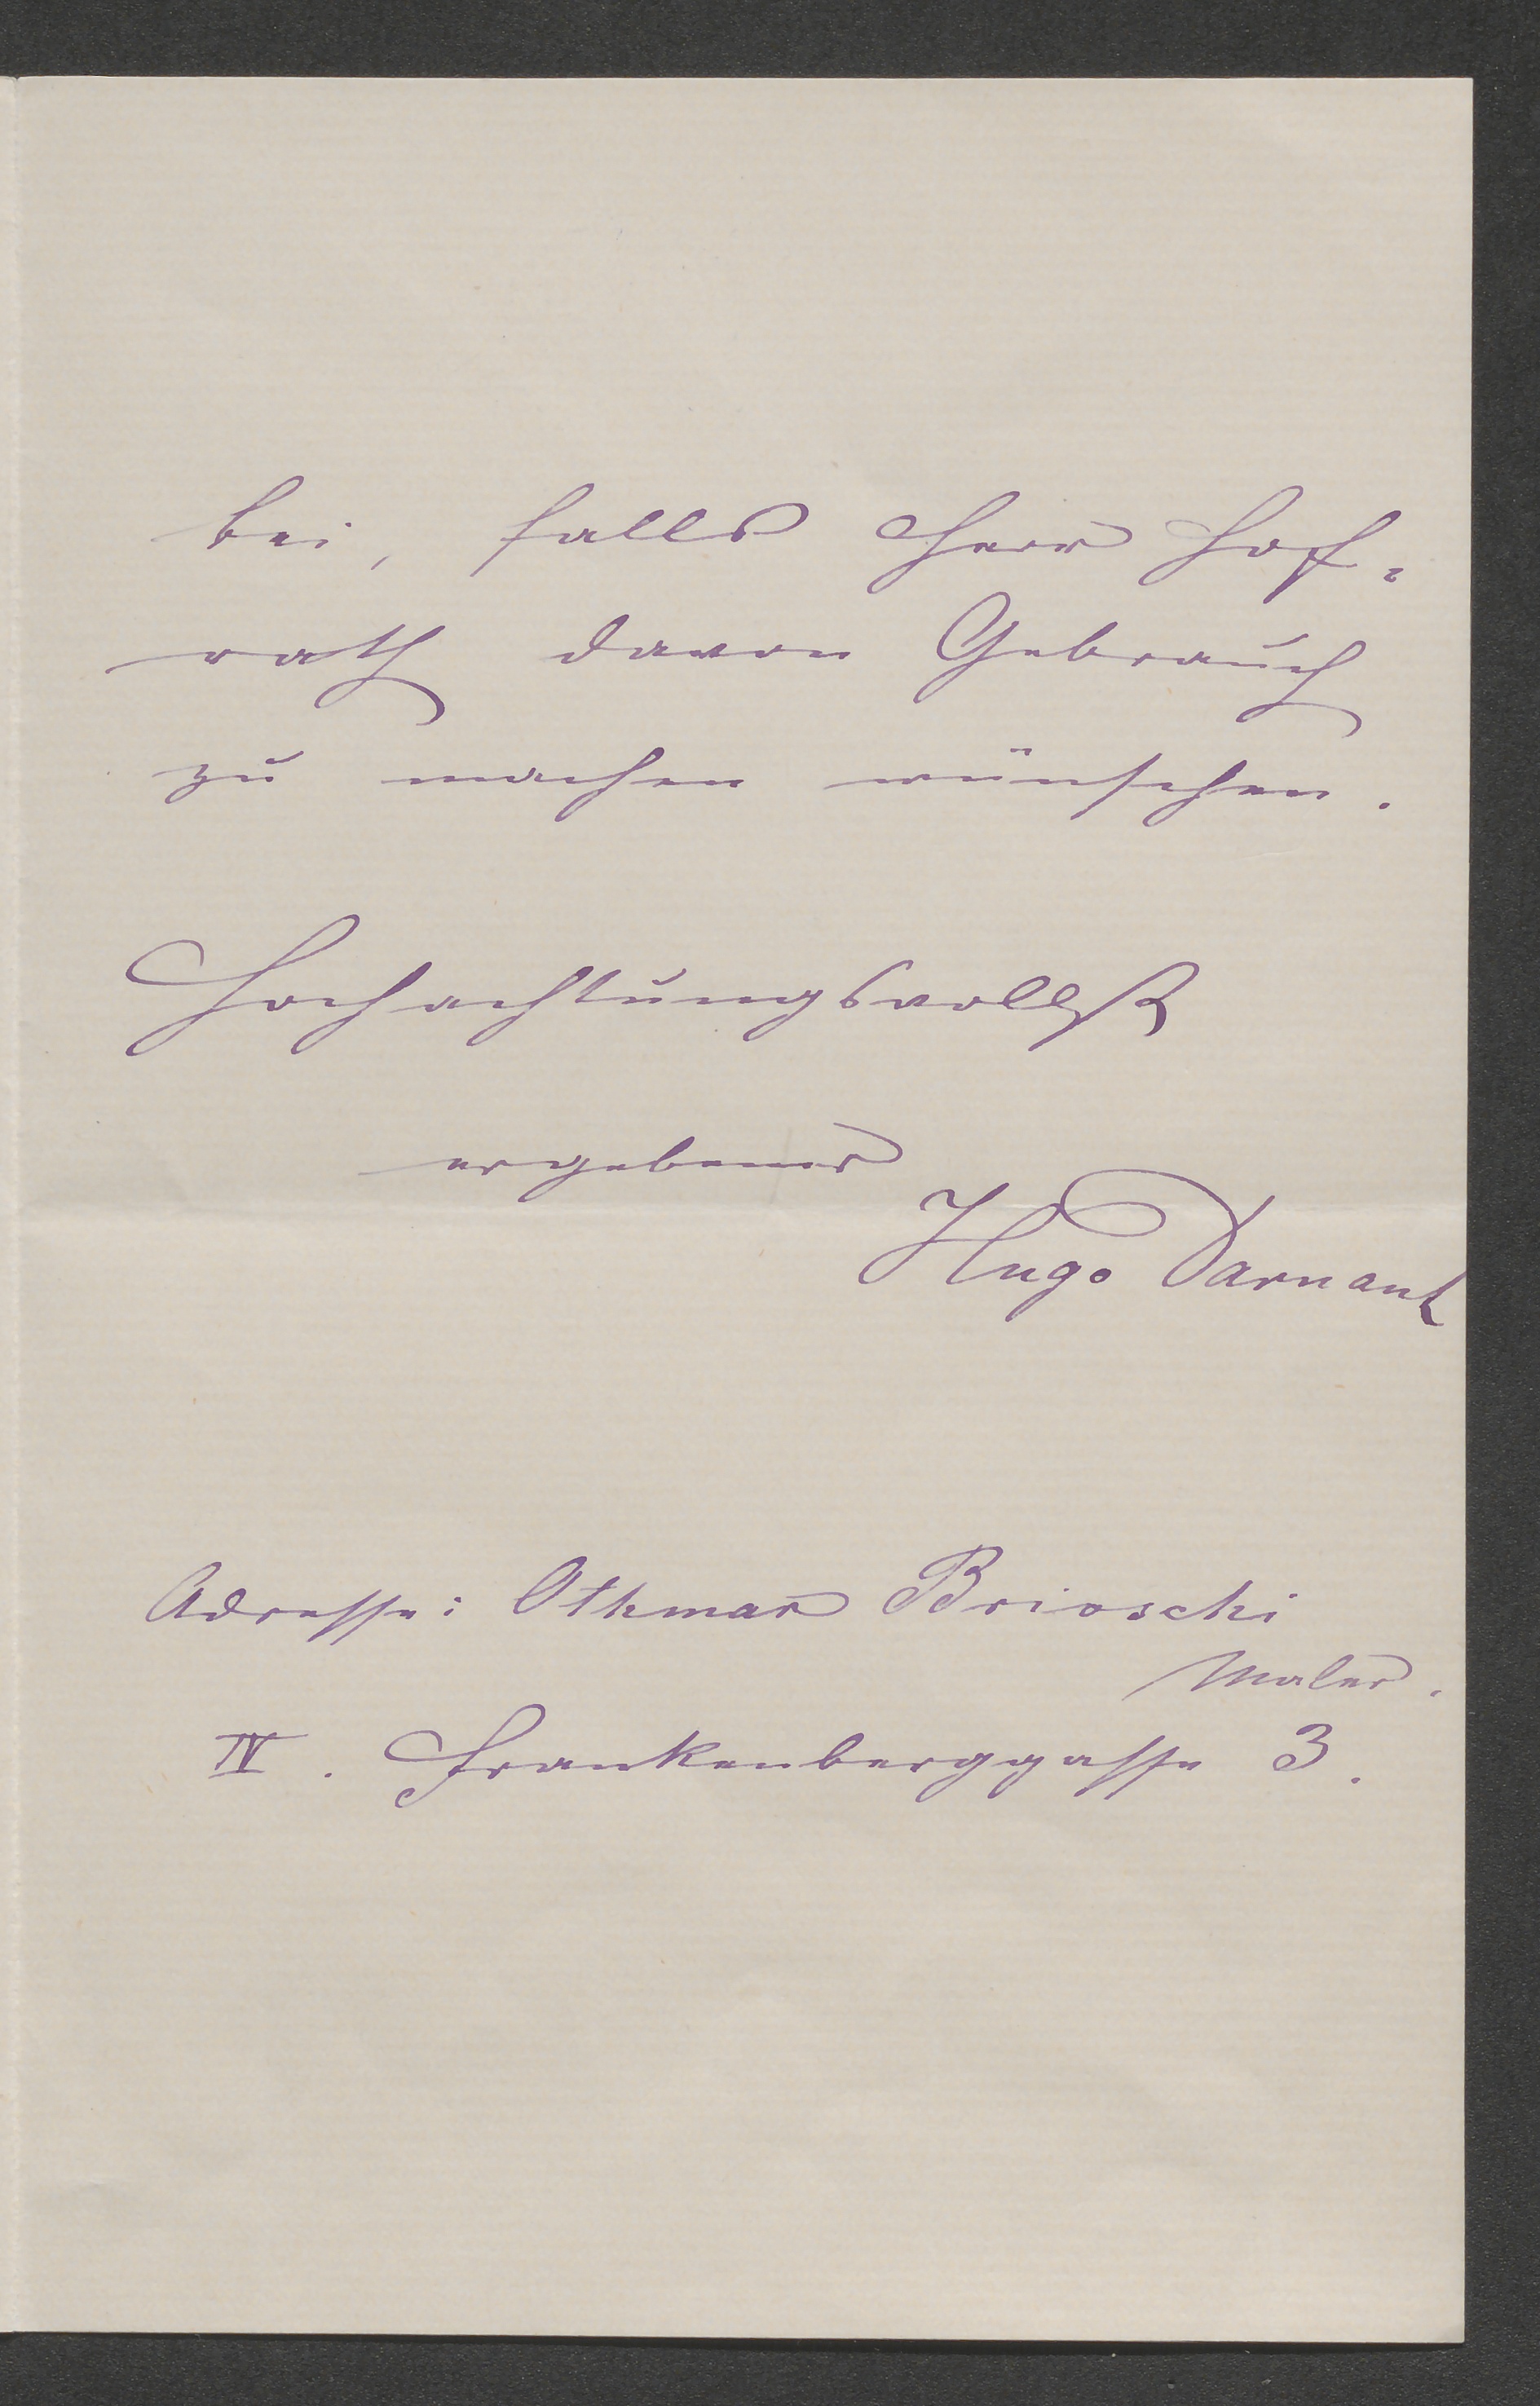 bei, falls Herr Hof-
rath davon Gebrauch
zu machen wünschen.
Hochachtungsvollst
ergebener
Hugo Darnaut
Adresse: Othmar Brioschi
Maler.
IV. Frankenberggasse 3.